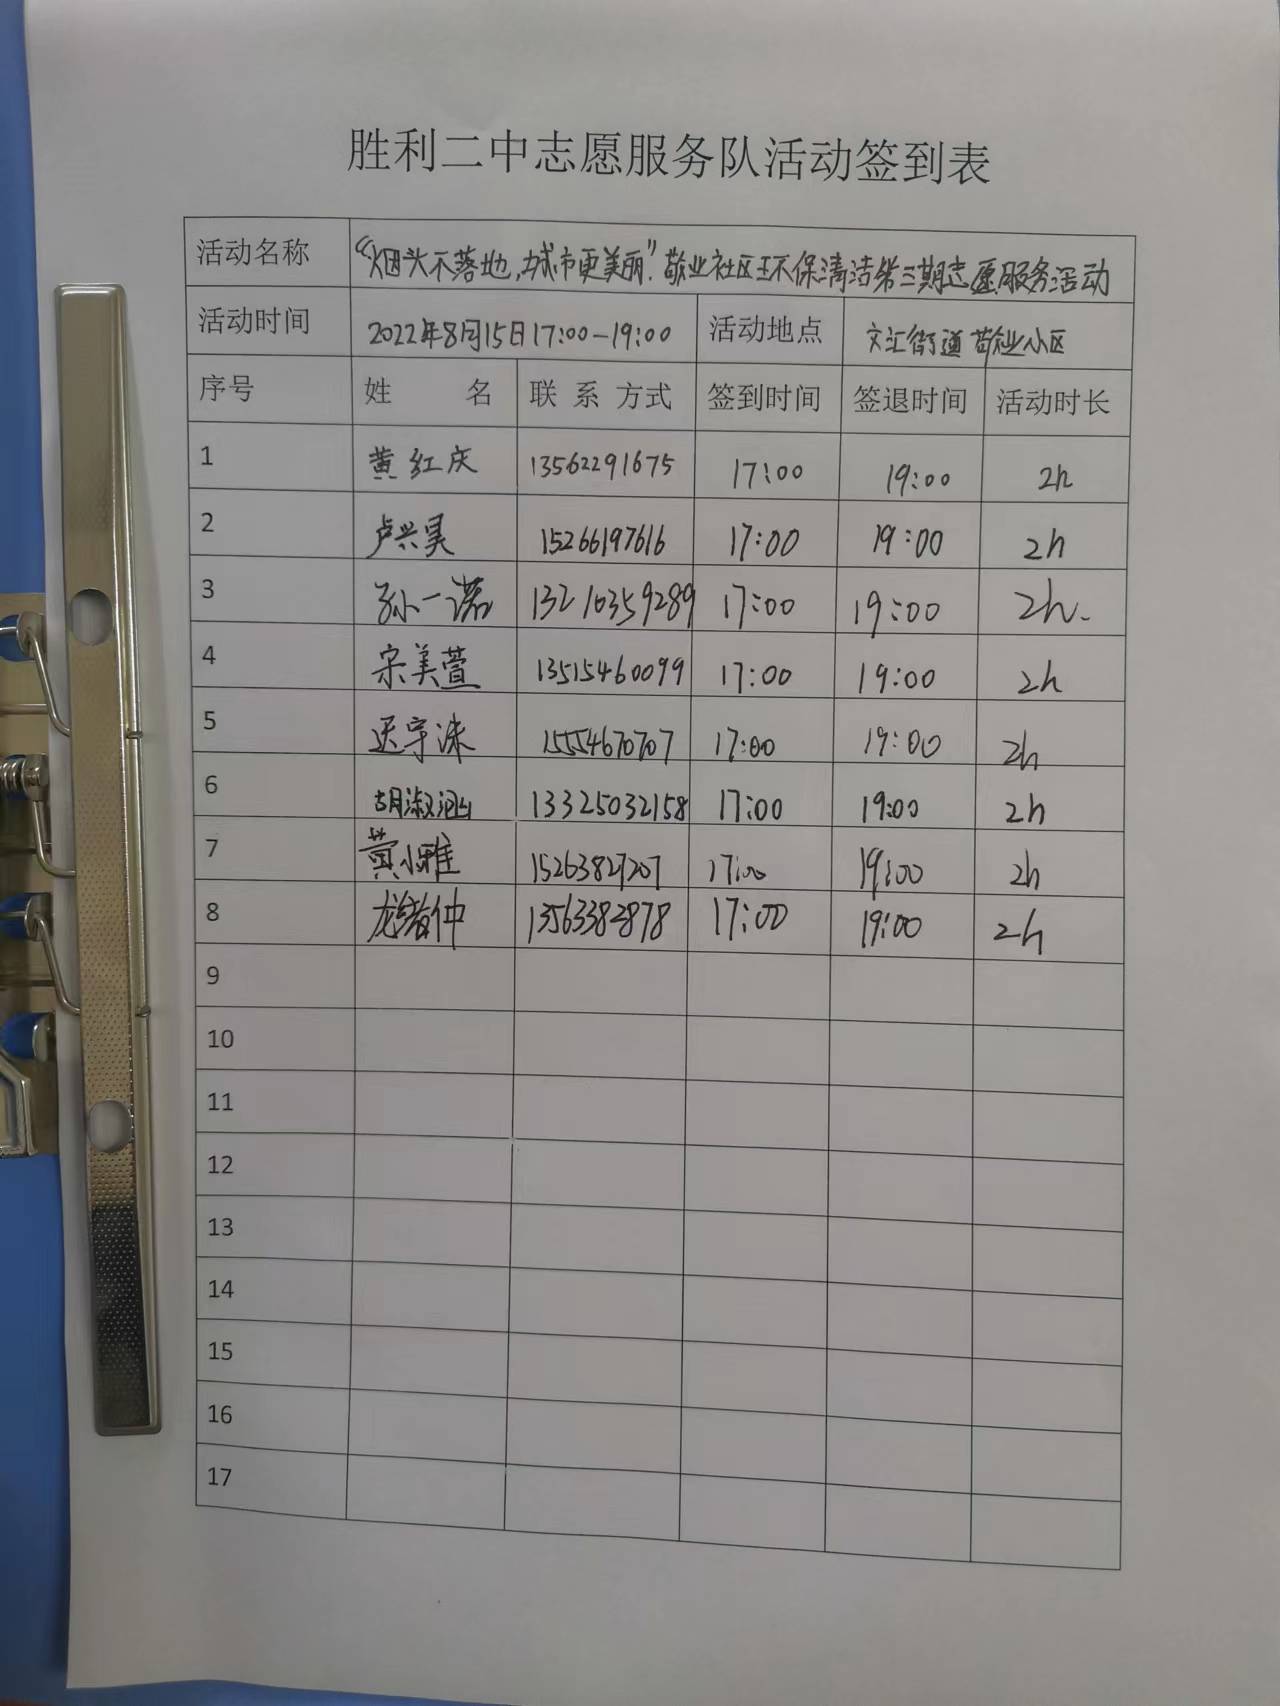 胜利二中志愿服务队活动签到表
活动名称 “烟头不落地,城市更美丽”.敬业社区环保清洁第三期志愿服务活动
活动时间 2022年8月15日17:00-19:00 活动地点 文汇街道敬业小区
序号 姓 名 联 系 方式 签到时间 签退时间 活动时长
1 黄红庆 13562291675 17:00 19:00 2h
2 卢兴昊 15266197616 17:00 19:00 2h
3 孙一诺 13210359289 17:00 19:00 2h.
4 宋美萱 13515460099 17:00 19:00 2h
5 迟宇沫 15554670707 17:00 19:00 2h
6 胡淑涵 13325032158 17:00 19:00 2h
7 黄小雅 15263827207 17:00 19:00 2h
8 13563382878 17:00 19:00 2h
9
10
11
12
13
14
15
16
17